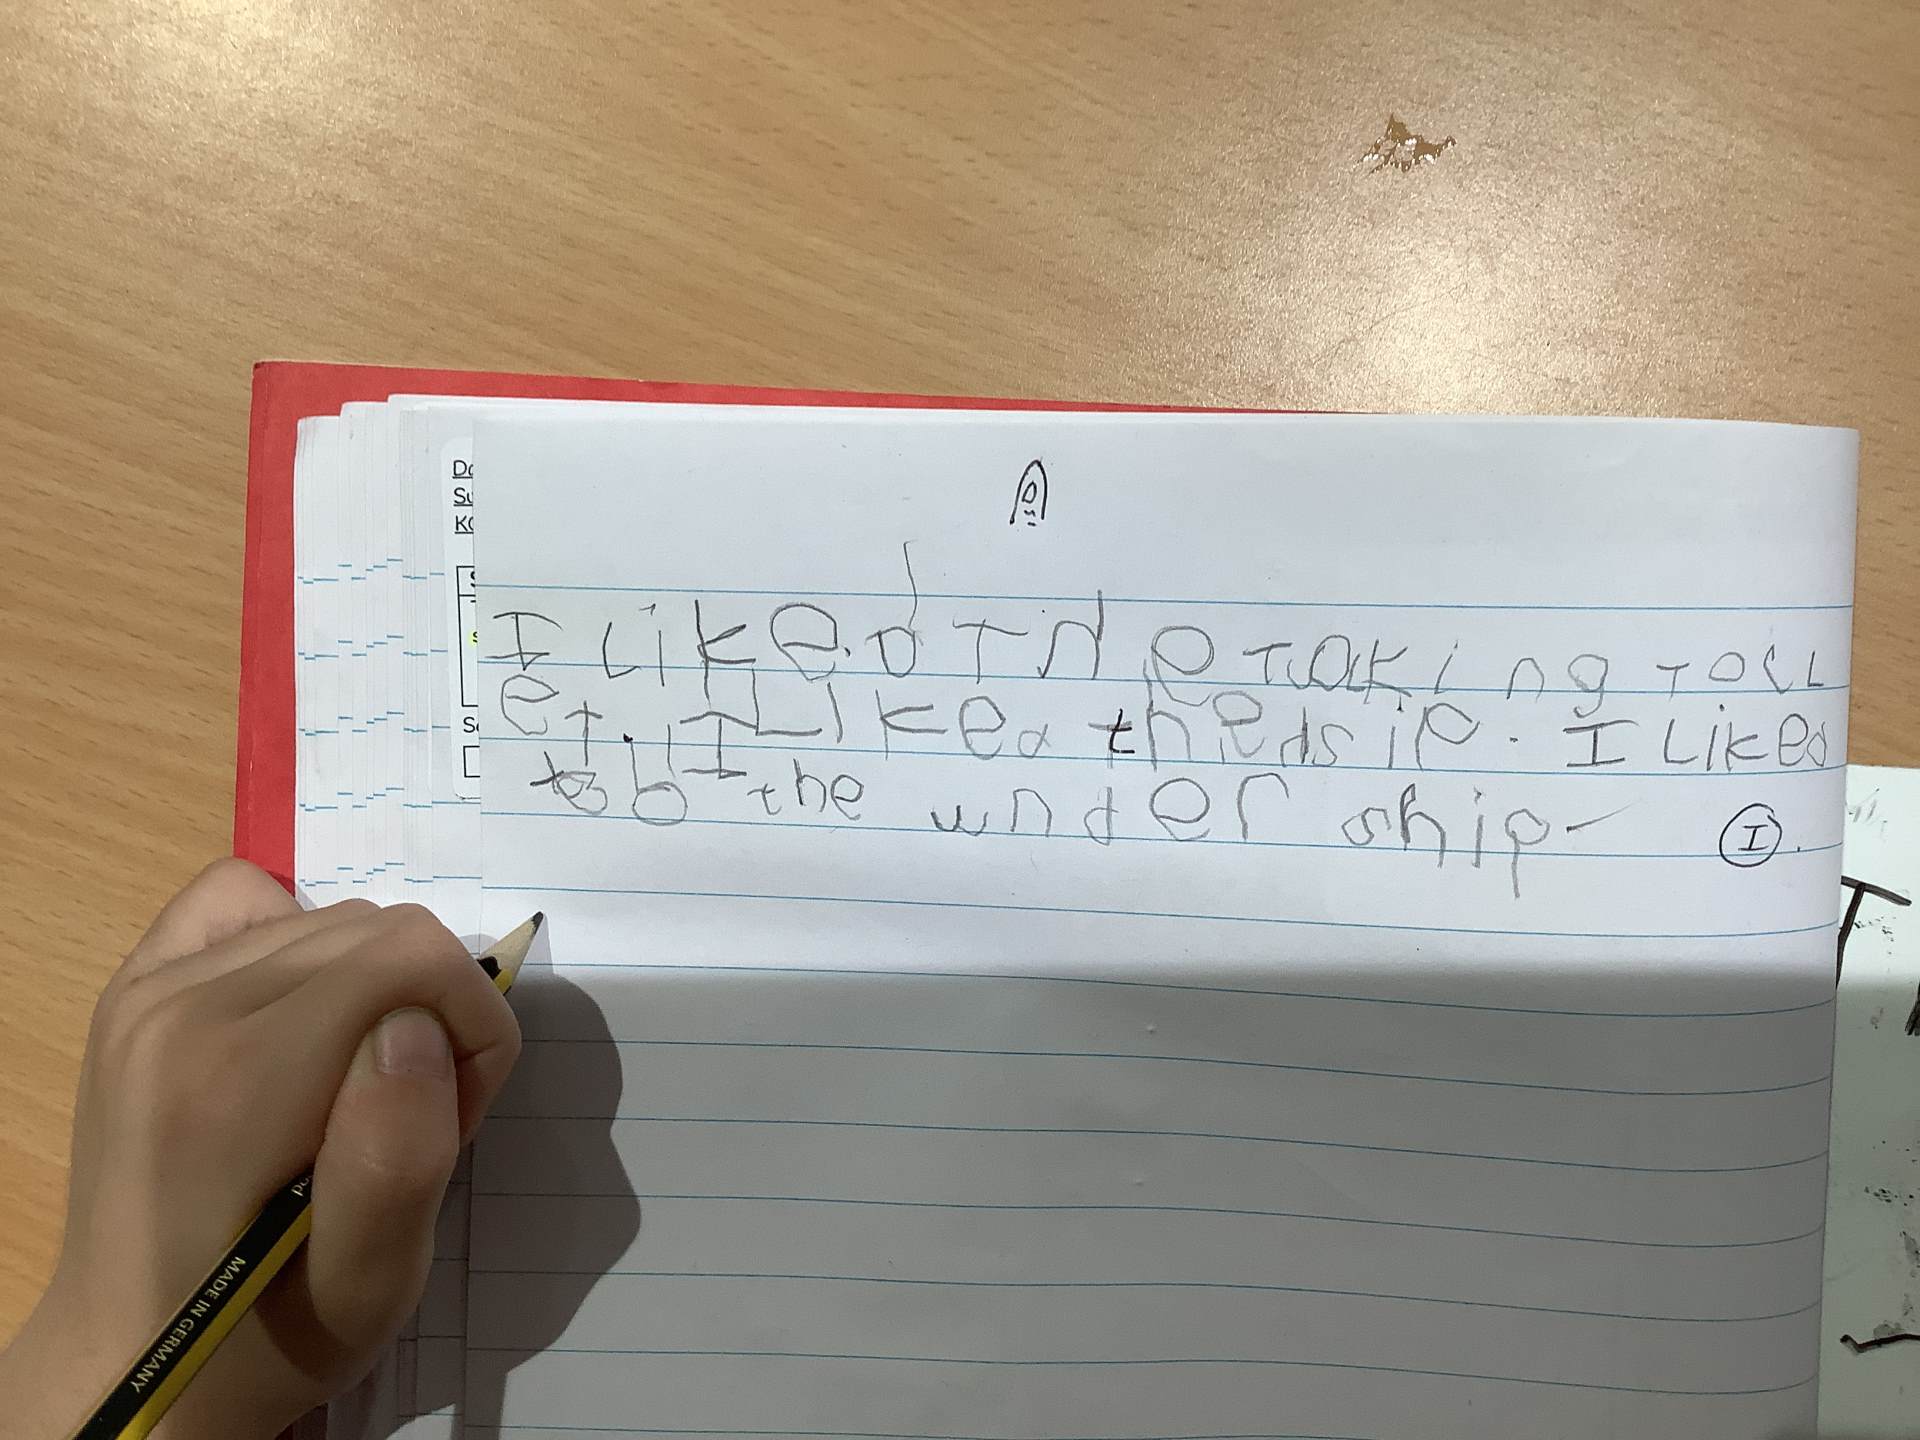 Da
Su
I liked the taking toil
et. I Liked the dsip. I Liked
to b the under ship
I.
MADE IN GERMANY